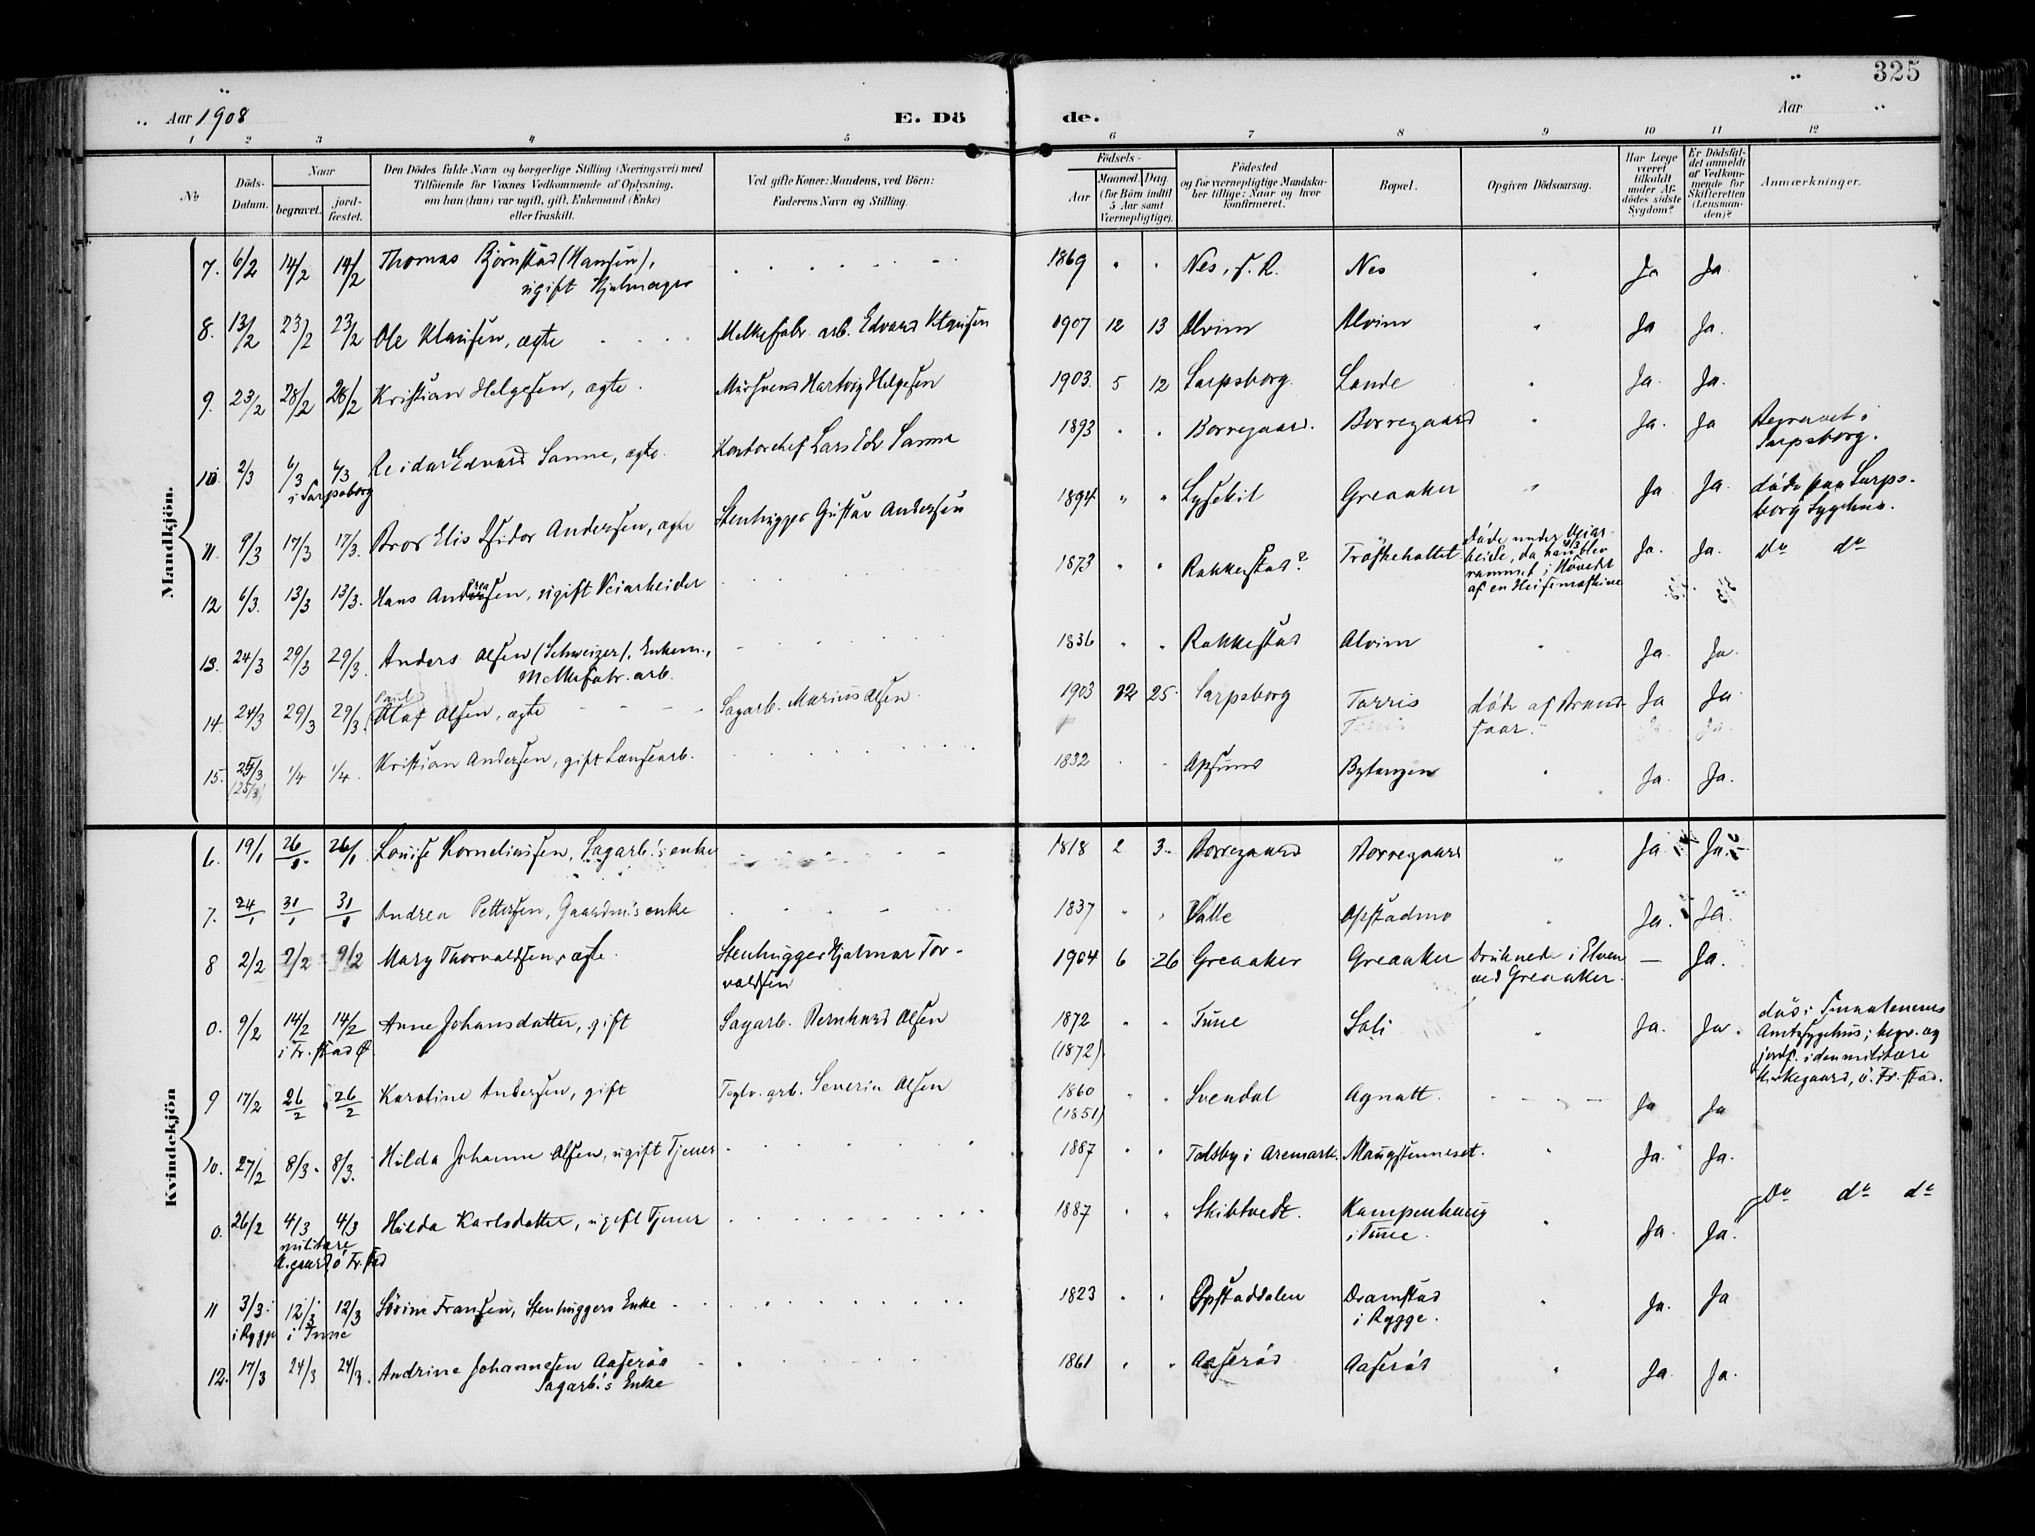 325
Aar 1908
E. Dö
de.
Aar
1 2 3 4 5 6 7 8 9 10 11 12
No
Döds-Datum.
Naar
begravet.
jord-fæstet.
Den Dödes fulde Navn og borgerlige Stilling (Næringsvei) med
Tilföiende for Voxnes Vedkommende af Oplysning,
om han (hun) var ugift, gift, Enkemand (Enke)
eller fraskilt.
Ved gifte Koner: Mandens, ved Börn:
Faderens Navn og Stilling.
Födsels-
Aar
Maaned. Dag.
(for Börn indtil
5 Aar samt
Værnepligtige).
Födested
og for værnepligtige Mandska-
ber tillige: Naar og hvor
konfirmeret.
Bopæl.
Opgiven Dödsaarsag.
Har Læge
været
tilkaldt
under Af-
dödes sidste
Sygdom?
Er Dödsfal-
det anmeldt
af Vedkom-
mende for
Skifteretten
(Lensman-
den)?
Anmærkninger.
Mandkjön.
7. 6/2 14/2 14/2 Thomas Björnstad (Hansen), 1869 Nes, s. R. Nes Ja Ja
ugift Hjulmager
8. 13/2 23/2 23/2 Ole Klausen, ægte Melkefabr. arb. Edvard Klausen 1907 12 13 Alvim Alvim Ja Ja.
9. 23/2 28/2 28/2 Kristian Helgesen, ægte. Mursvend Hartvig Helgesen 1903. 5 12 Sarpsborg. Lande Ja. Ja.
10 2/3 6/3 6/3 Reidar Edvard Sanne, ægte. Kontorchef Lars Edv Sanne 1893 Borregaard. Borregaard Ja. Ja Begravet i
i Sarpsborg Sarpsborg.
11. 9/3 17/3 17/3. Bror Elis Isidor Andersen, ægte Stenhugger Gustav Andersen 1894 Lysekil Greaaker Ja Ja. døde paa Sarps-
borg Sygehus.
12 6/3. 13/3 13/3. Hans Andreasen, ugift Veiarbeider 1873 Rakkestad? Tröskehaltet døde under Veiar-
beide, da han 4/3 blev
rammet i Hovedet
af en Heisemaskine Ja. Ja. Do do
13. 24/3 29/3 29/3. Anders Olsen (Schweizer), Enkem., 1836 Rakkestad Alvim Ja. Ja.
Melkefabr. arb.
14. 24/3 29/3 29/3. Olaf Olsen, ægte Sagarb. Marius Olsen. 1903 12 25. Sarpsborg Torris døde af Brand- Ja Ja
saar.
15. 25/3 1/4 1/4. Kristian Andersen, gift Lænsearb. 1832 Opsund Bytangen Ja. Ja.
(25/3)
Kvindekjön
6. 19/1 26/1. 26/1 Louise Korneliusen, Sagarb.'s enke 1818 2 3. Borregaard Borregaard Ja Ja.
7. 24/1 31/1 31/1 Andrea Pettersen, Gaardm's enke 1837 Valle Opstadmo Ja. Ja.
8 2/2 9/2 9/2 Mary Thorvaldsen, ægte. Stenhugger Hjalmar Tor-
valdsen 1904 6 26 Greaaker Greaaker Druknede i Elven
ved Greaaker. — Ja.
0. 9/2 14/2 14/2 Anne Johansdatter, gift Sagarb. Bernhard Olsen 1872 Tune Soli Ja. Ja.
i Fr.stad (1872) død i Smaalenenes
Amtssygehus; begr. og
jordf. i den militære
Kirkegaard, ö. Fr.stad.
9 17/2 26/2 26/2 Karoline Andersen, gift Teglv. arb. Severin Olsen 1860 Svendal Agnatt. Ja Ja
(1851)
10. 27/2 8/3. 8/3. Hilda Johanne Olsen, ugift Tjener 1887 Tolsby i Aremark. Maugstenneset. Ja. Ja.
0. 26/2 4/3 4/3 Hulda Karlsdatter, ugift Tjener 1887 Skibtvedt. Kampenhaug
i Tune. Ja. Ja. Do do do
militære
K.gaard ö Fr.stad
11 3/3. 12/3 12/3 Sörine Fransen, Stenhuggers Enke 1823 Opstaddalen Dramstad
i Rygge i Tune i Rygge. Ja. Ja
12. 17/3 24/3 24/3. Andrine Johannesen Aaseröd 1861 Aaseröd Aaseröd Ja. Ja.
Sagarb.'s Enke